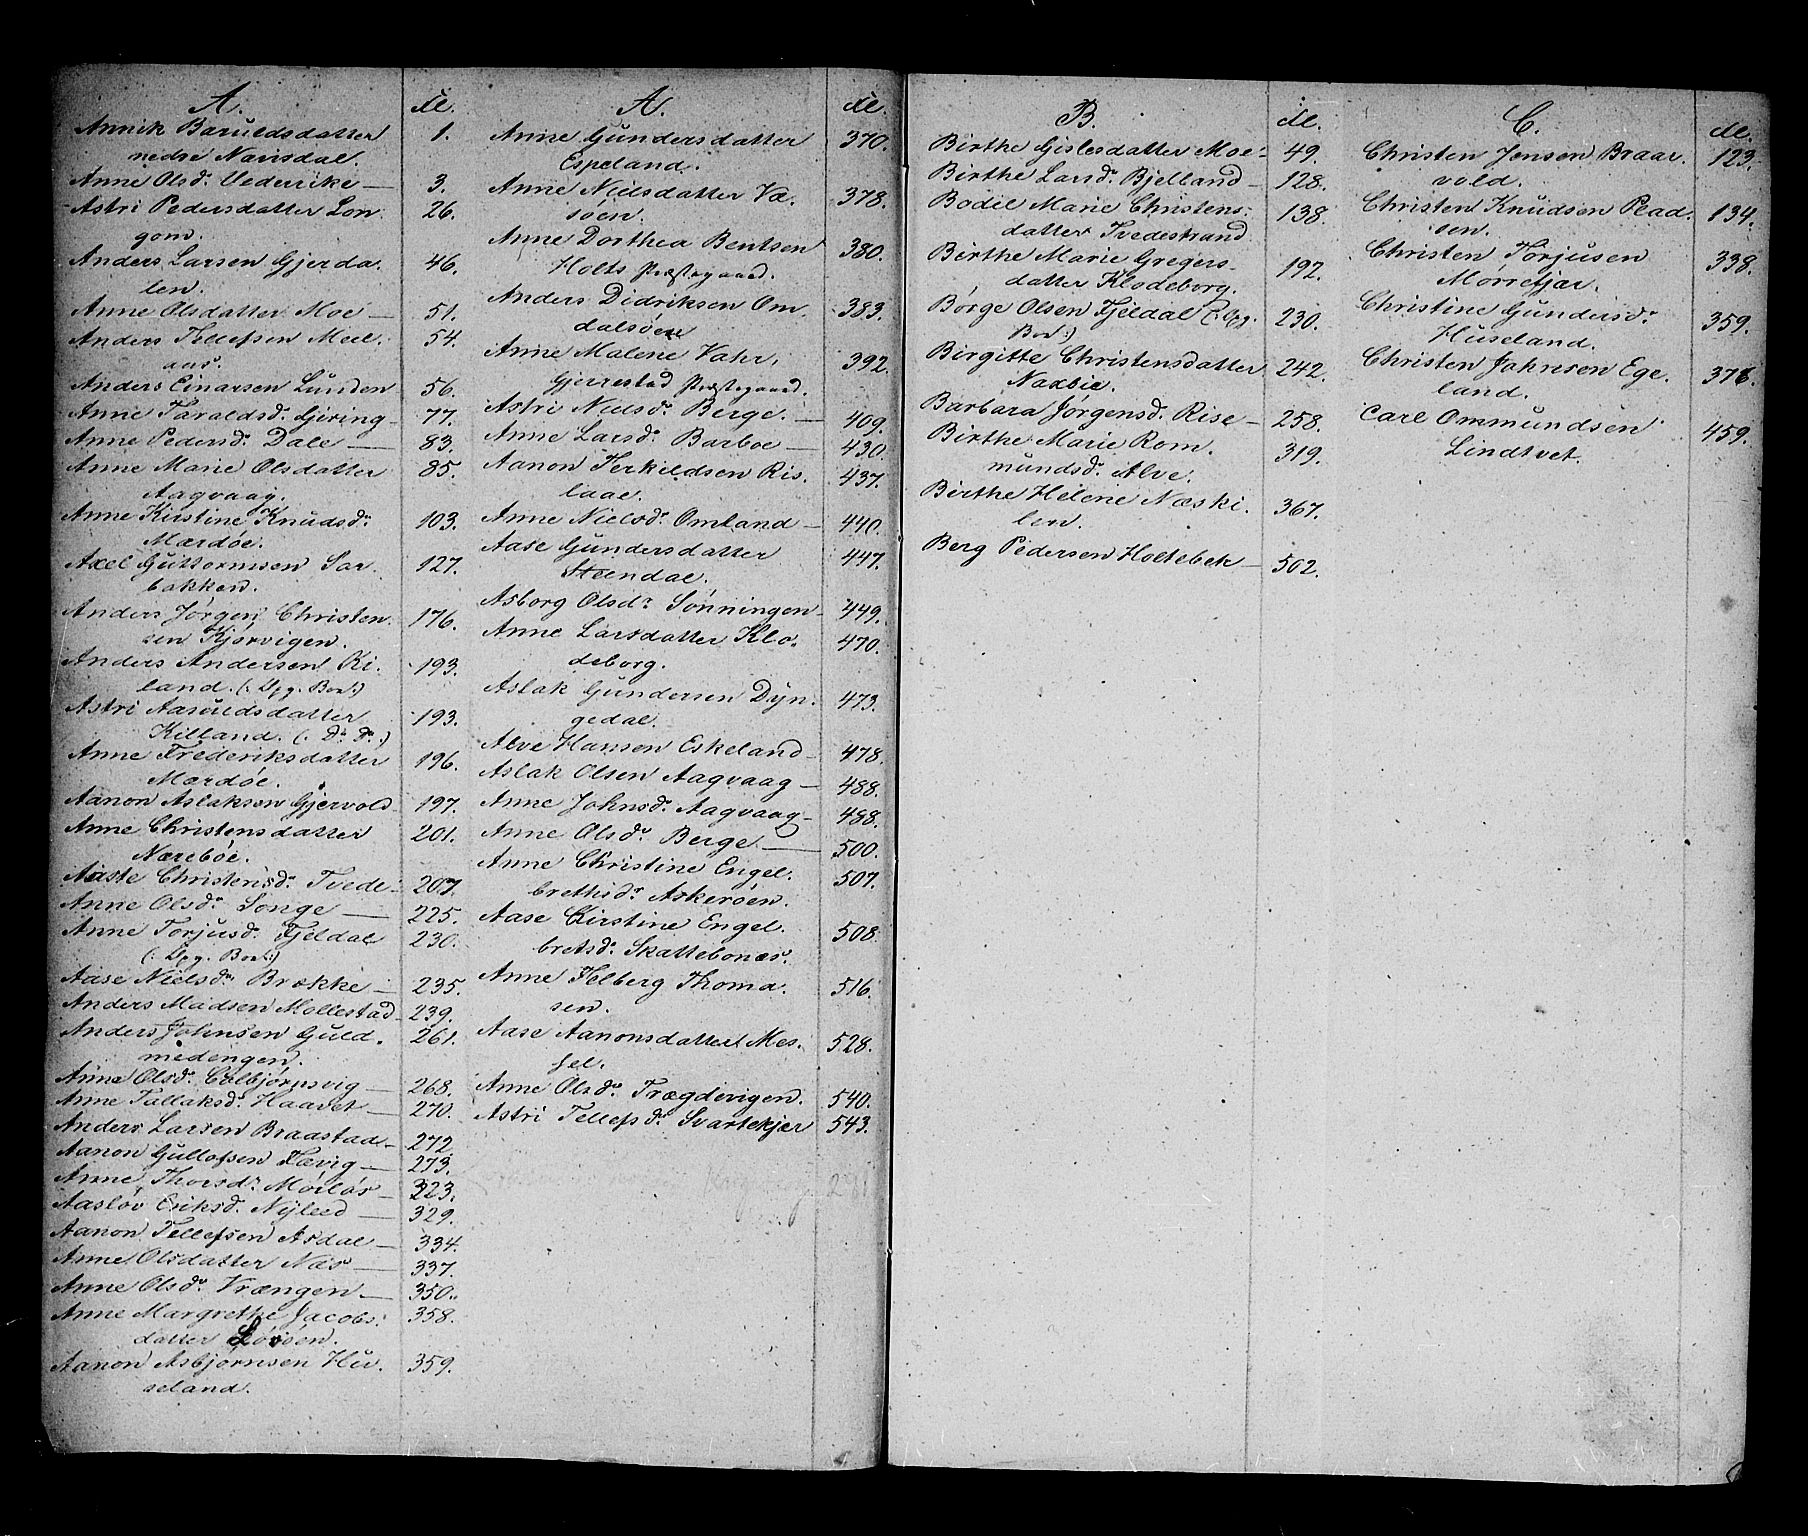 A. № 
Annik Baruldsdatter 1.
nedre Navisdal.
Anne Olsd. Uederike — 3.
Astri Pedersdatter Lon 26.
gom.
Anders Larsen Gjerda. 46.
len.
Anne Olsdatter Moe — 51.
Anders Tellefsen Moel. 54.
aas.
Anders Einarsen Lunden 56.
Anne Taraldsd. Giving 77.
Anne Pedersd. Dale — 83.
Anne Marie Olsdatter 85.
Aagvaag.
Anne Kirstine Knudsd. 103.
Mærdøe.
Axel Guttormsen Sar. 127.
bakken.
Anders Jørgen Christen 176.
sen Kjørvigen.
Anders Andersen Ki. 193.
land. (: Opg. Bort:)
Astri Aasuldsdatter 193.
Killand. (: Do Do :)
Anne Frederiksdatter 196.
Mærdøe.
Aanon Aslaksen Gjervold 197.
Anne Christensdatter 201.
Nærebøe.
Aaste Christensd. Tvede 207.
Anne Olsd. Songe — 225.
Anne Torjusd. Fjeldal 230.
(: Opg. Bort:)
Aase Nielsd. Brække — 235.
Anders Madsen Mollestad 239.
Anders Johnsen Guld. 261.
medengen.
Anne Olsd. Colbjørnsvig — 268.
Anne Tallaksd. Haavet — 270.
Anders Larsen Braastad — 272.
Aanon Gullofsen Færvig — 273.
Anne Thorsd. Mørlös — 323.
Aasløv Eriksd. Nyleed — 329.
Aanon Tellefsen Asdal — 334.
Anne Olsdatter Næs — 337.
Anne Olsd. Vrængen — 350.
Anne Margrethe Jacobs. 358.
datter
Aanon Asbjørnsen Hu. 359.
seland.
A. №
Anne Gundersdatter 370.
Espeland.
Anne Nielsdatter Va. 378.
søen.
Anne Dorthea Bentsen 380.
Holts Præstegaard.
Anders Didriksen Om. 383.
dalsøen
Anne Malene Vahr, 392.
Gjerrestad Præstegaard.
Astri Nielsd. Berge. — 409.
Anne Larsd. Barboe — 430.
Aanon Terkildsen Ris. 437.
laae.
Anne Nielsd. Omland — 440.
Aase Gundersdatter 447.
Steendal.
Asborg Olsd. Sønningen 449.
Anne Larsdatter Klo. 470.
deborg.
Aslak Gundersen Dyn. 473.
gedal.
Alve Hansen Eskeland — 478.
Aslak Olsen Aagvaag — 488.
Anne Johnsd. Aagvaag — 488.
Anne Olsd. Berge — 500.
Anne Christine Engel. 507.
brethsd. Askerøen.
Aase Kirstine Engel. 508.
bretsd. Skattebonæs.
Anne Felberg Thoma. 516.
sen.
Aase Aanonsdatter Mes. 528.
sel.
Anne Olsd. Trægdevigen. 540.
Astri Tellefsd. Svartekjær 543.
B. №
Birthe Gislesdatter Moe 49.
Birthe Larsd. Bjelland 128.
Bodil Marie Christens. 138.
datter Tvedestrand
Birthe Marie Gregers. 192.
datter Klodeborg.
Børge Olsen Fjeldal (: Opg. 230.
Bort:)
Birgitte Christensdatter 242.
Naxbie.
Barbara Jørgensd. Rise — 258.
Birthe Marie Rom. 319.
mundsd. Alve.
Birthe Helene Næski. 367.
len.
Berg Pedersen Holtebek — 502.
C. №
Christen Jensen Braar. 123.
vold.
Christen Knudsen Plad. 134.
sen.
Christen Torjusen 338.
Mørrefjær.
Christine Gundersd. 359.
Huseland.
Christen Johnsen Ege. 376.
land.
Carl Ommundsen 459.
Lindtvet.